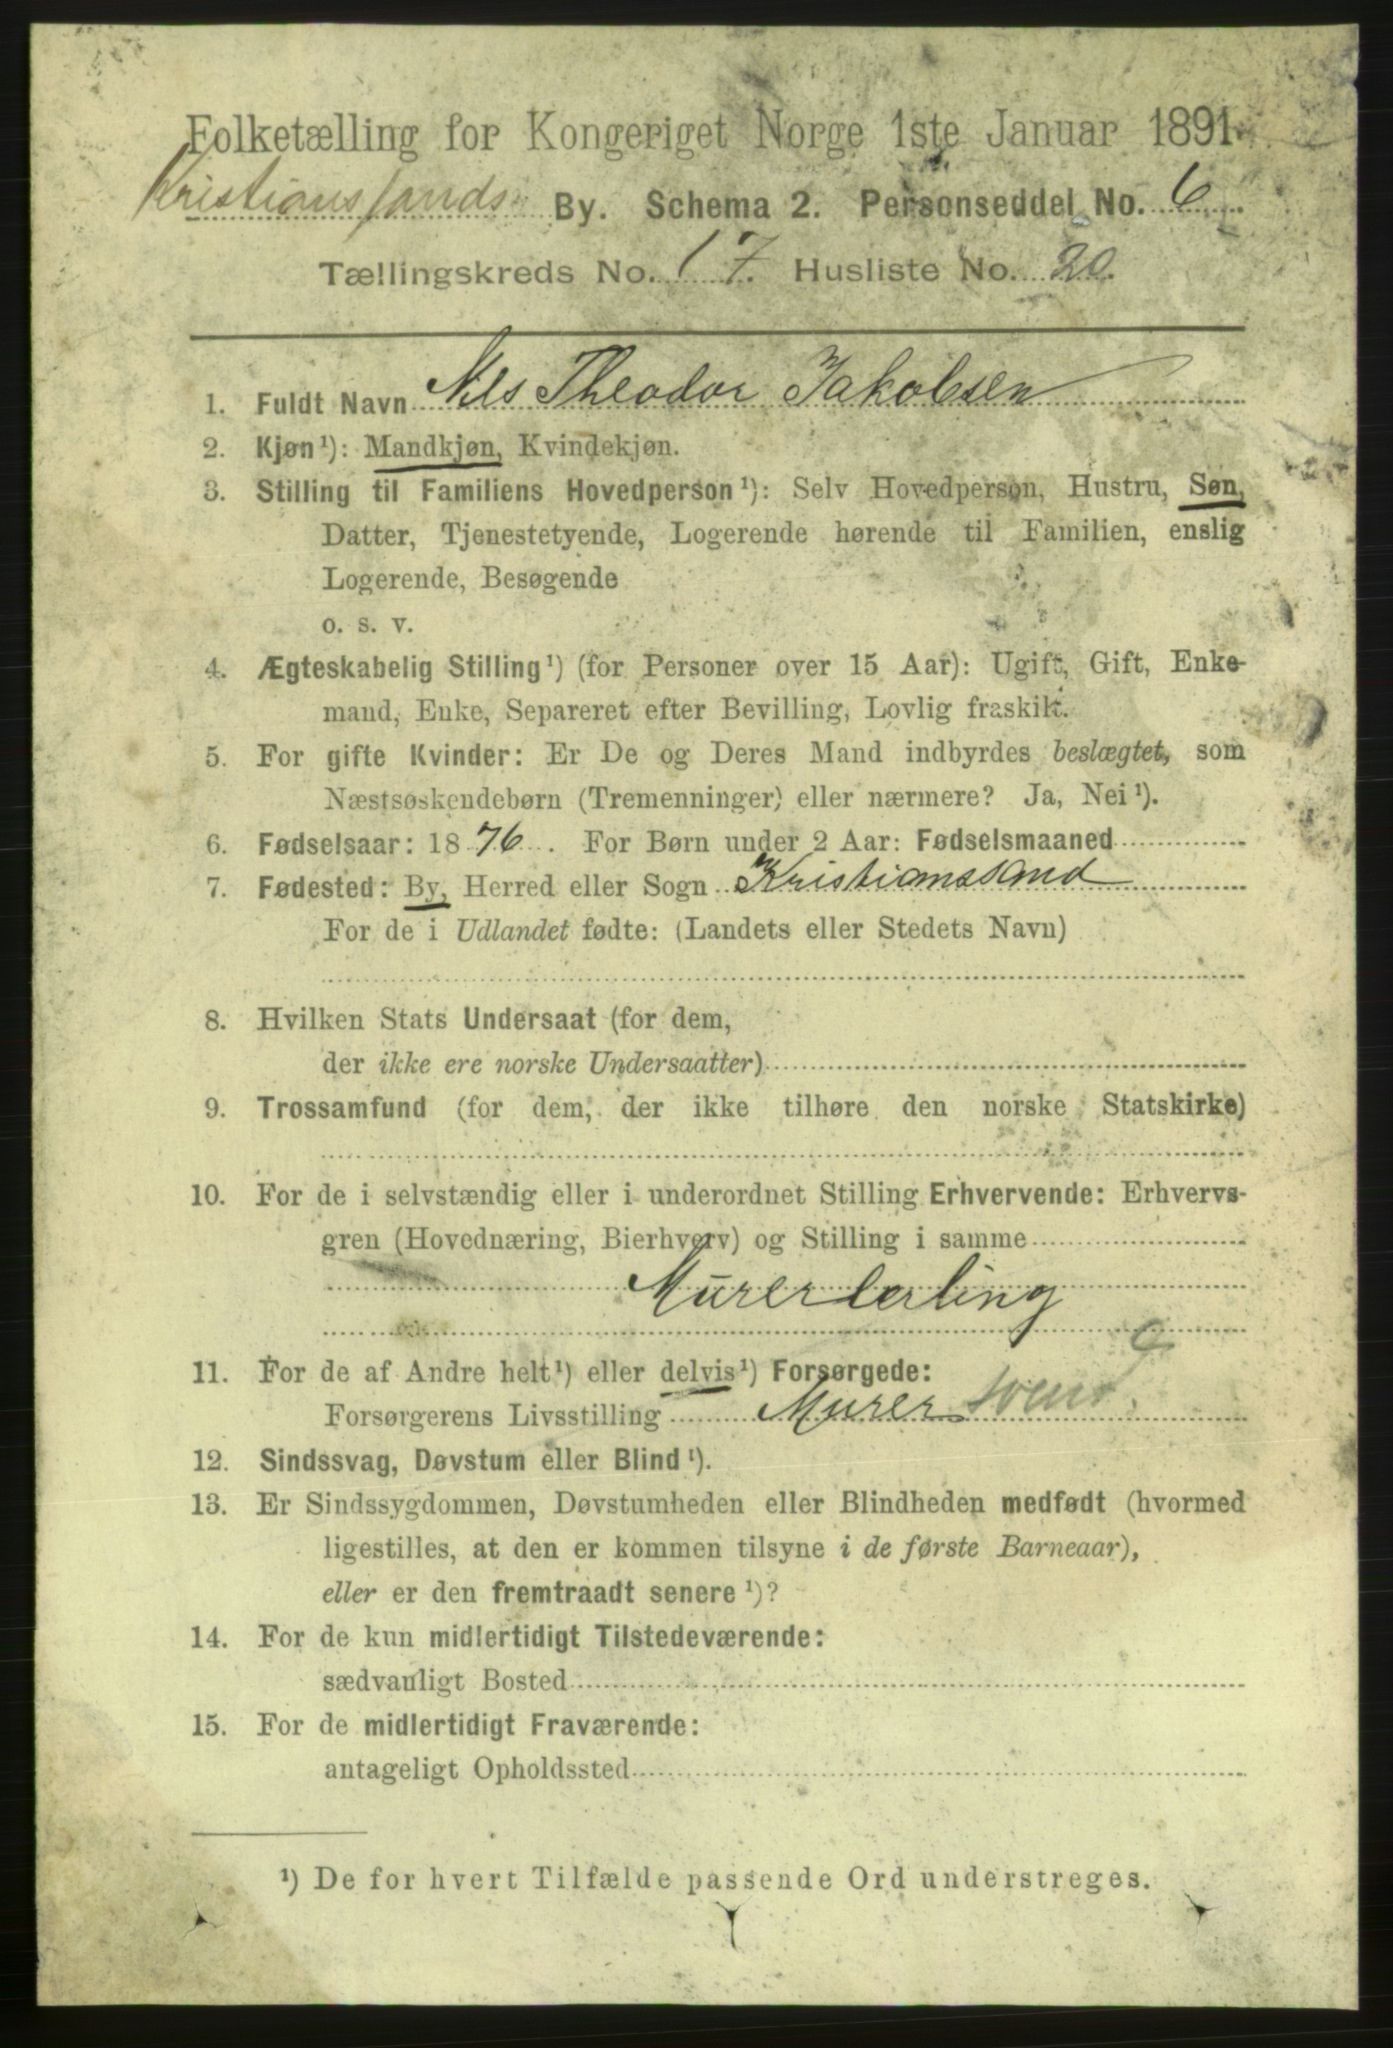 Folketælling for Kongeriget Norge 1ste Januar 1891.
Kristianssands By. Schema 2. Personseddel No. 6.
Tællingskreds No. 17. Husliste No. 20.
1. Fuldt Navn Nils Theodor Jakobsen
2. Kjøn¹): Mandkjøn, Kvindekjøn.
3. Stilling til Familiens Hovedperson¹): Selv Hovedperson, Hustru, Søn,
Datter, Tjenestetyende, Logerende hørende til Familien, enslig
Logerende, Besøgende
o. s. v.
4. Ægteskabelig Stilling¹) (for Personer over 15 Aar): Ugift, Gift, Enke-
mand, Enke, Separeret efter Bevilling, Lovlig fraskilt.
5. For gifte Kvinder: Er De og Deres Mand indbyrdes beslægtet, som
Næstsøskendebørn (Tremenninger) eller nærmere? Ja, Nei¹).
6. Fødselsaar: 1876. For Børn under 2 Aar: Fødselsmaaned
7. Fødested: By, Herred eller Sogn Kristianssand
For de i Udlandet fødte: (Landets eller Stedets Navn)
8. Hvilken Stats Undersaat (for dem,
der ikke ere norske Undersaatter)
9. Trossamfund (for dem, der ikke tilhøre den norske Statskirke)
10. For de i selvstændig eller i underordnet Stilling Erhvervende: Erhvervs-
gren (Hovednæring, Bierhverv) og Stilling i samme
Murerlerling
11. For de af Andre helt¹) eller delvis¹) Forsørgede:
Forsørgerens Livsstilling Murer svend
12. Sindssvag, Døvstum eller Blind¹).
13. Er Sindssygdommen, Døvstumheden eller Blindheden medfødt (hvormed
ligestilles, at den er kommen tilsyne i de første Barneaar),
eller er den fremtraadt senere¹)?
14. For de kun midlertidigt Tilstedeværende:
sædvanligt Bosted
15. For de midlertidigt Fraværende:
antageligt Opholdssted
¹) De for hvert Tilfælde passende Ord understreges.